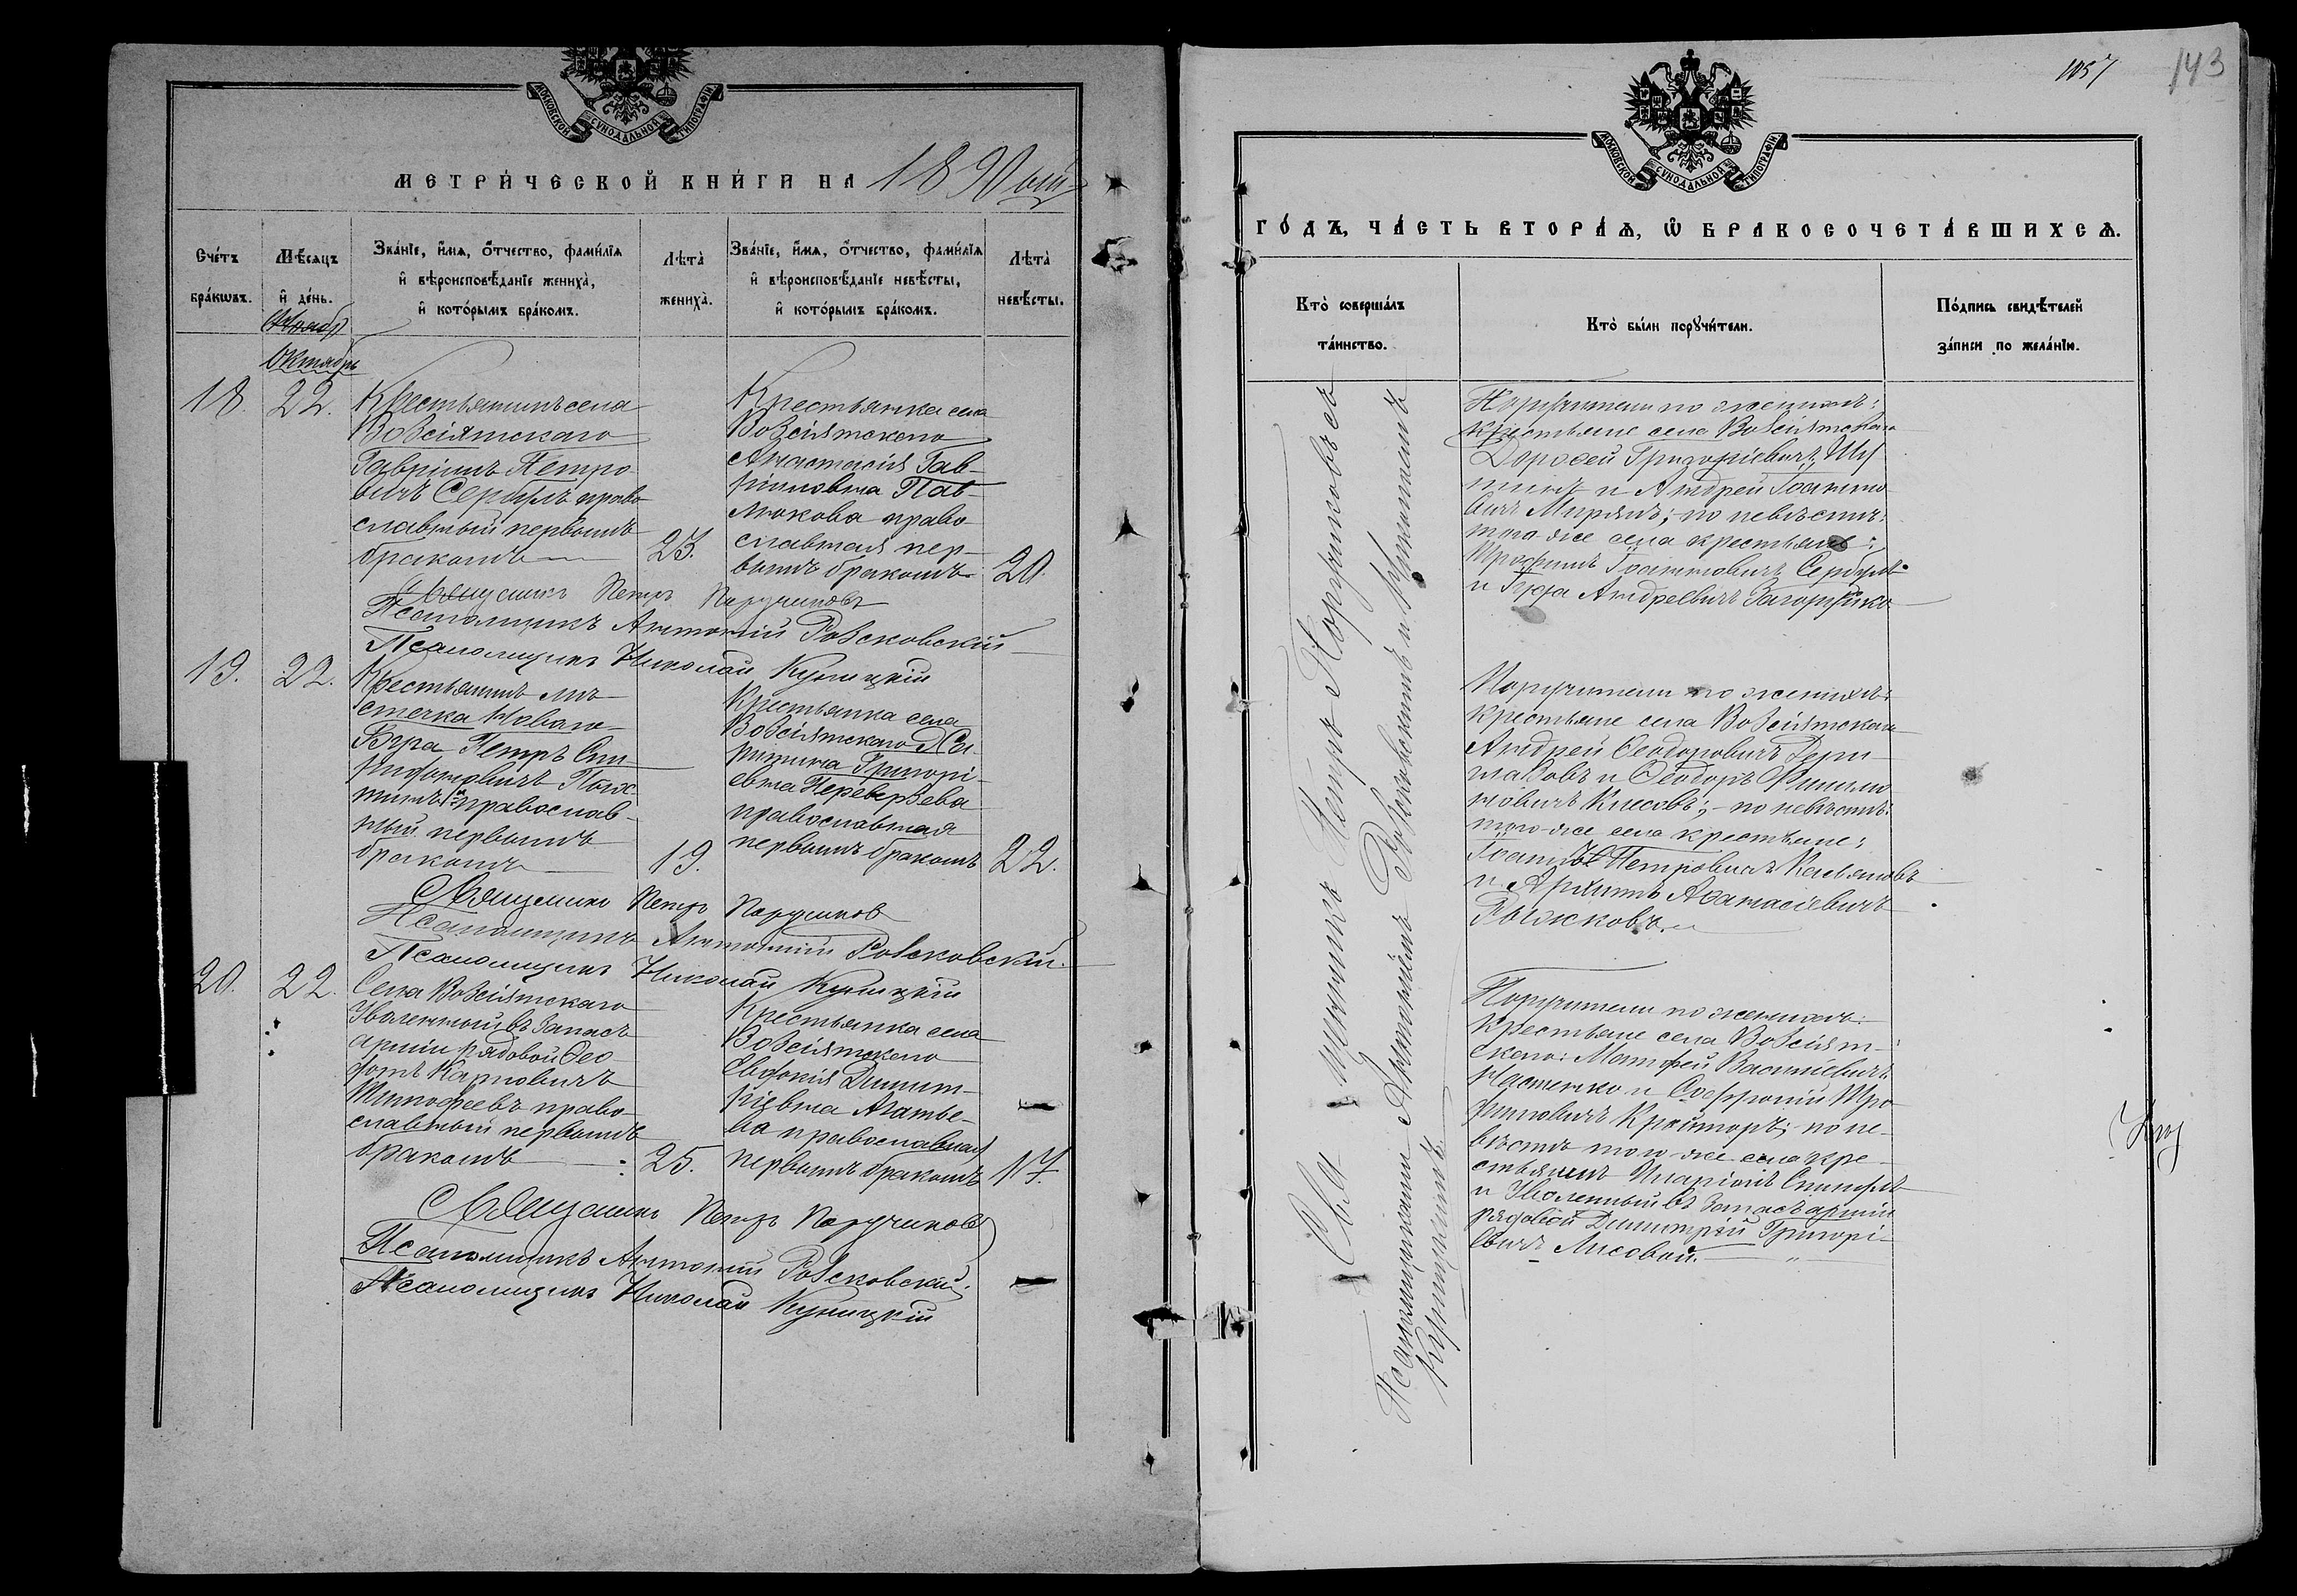 МОСКОВСКОЙ СУНОДАЛЬНОЙ ТИПОГРАФІИ
МЕТРИ́ЧЕСКОЙ КНИ́ГИ НА 1890 ый
Сче́тъ бра́кωвъ.
Мѣ́сяцъ и҆ де́нь.
Зва́нїе, и҆́мѧ, ѻ҆́тчество, фами́лїѧ и҆ вѣроисповѣ́данїе жениха̀, и҆ кото́рымъ бра́комъ.
Лѣта̀ жениха̀.
Зва́нїе, и҆́мѧ, ѻ҆́тчество, фами́лїѧ и҆ вѣроисповѣ́данїе невѣ́сты, и҆ кото́рымъ бра́комъ.
Лѣта̀ невѣ́сты.
Октябрь
18.
22.
Крестьянинъ села
Возсіятскаго
Гавріилъ Петро-
вичъ Сербулъ право-
славный первымъ
бракомъ
23.
Крестьянка села
Возсіятскаго
Анастасія Гав-
ріиловна Пав-
люкова право-
славная пер-
вымъ бракомъ
20.
Священникъ Петръ Поручиковъ
Псаломщикъ Антоній Росковскій
Псаломщикъ Николай Куницкій
19.
22.
Крестьянинъ мѣ-
стечка Новаго-
Буга Петръ Спи-
ридоновичъ
православ-
ный первымъ
бракомъ
19.
Крестьянка села
Возсіятскаго
Григорі-
евна Переверзева
православная
первымъ бракомъ
22.
Священникъ Петръ Поручиковъ
Псаломщикъ Антоній Росковскій.
Псаломщикъ Николай Куницкій
20.
22.
Села Возсіятскаго
Уволенный въ запасъ
арміи рядовой Ѳео-
Карповичъ
Тимофеевъ право-
славный первымъ
бракомъ
25.
Крестьянка села
Возсіятскаго
Евдокія Димит-
ріевна Агатье-
ва православная
первымъ бракомъ
17.
Священникъ Петръ Поручиковъ
Псаломщикъ Антоній Росковскій.
Псаломщикъ Николай Куницкій
1057
143
МОСКОВСКОЙ СУНОДАЛЬНОЙ ТИПОГРАФІИ
ГО́ДЪ, ЧА́СТЬ ВТОРА́Ѧ, Ѡ҆ БРАКОСОЧЕТА́ВШИХСѦ.
Кто̀ соверша́лъ та́инство.
Кто̀ бы́ли порꙋчи́тели.
По́дпись свидѣ́телей за́писи по жела́нїю.
Священникъ Петръ Поручиковъ съ
Псаломщиками Антоніемъ Росковскимъ и Николаемъ
Куницкимъ.
Поручители по женихѣ:
крестьяне села Возсіятскаго
Доросей Григоріевичъ
и Андрей Іоанно-
вичъ Мирянъ; по невѣстѣ:
того-же села крестьяне:
Трофимъ Іоанновичъ Сербулъ
и Андреевичъ Загоруйко
Поручители по женихѣ:
крестьяне села Возсіятскаго
Андрей Ѳеодоровичъ
и Ѳеодоръ Филип-
повичъ Кисовъ; по невѣстѣ:
того-же села крестьяне:
Іоаннъ Петровичъ Касьяновъ
и Архипъ Аѳанасіевичъ
Рыжковъ.
Поручители по женихѣ:
крестьяне села Возсіят-
скаго: Матфей Василіевичъ
и Софроній Тро-
фимовичъ по не-
вѣстѣ того-же села кре-
стьянинъ Иларіонъ
и Уволенный въ запасъ арміи
рядовой Димитрій Григорі-
евичъ Лисовой.